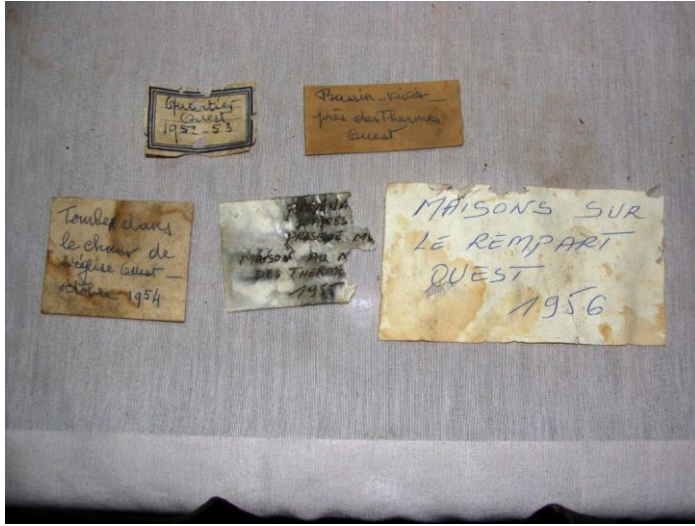 Quartier
Ouest
1952-53
Bassin-vivier
près des Thermes
Ouest
Tombes dans
le chœur de
l'église Ouest_
octobre 1954
PRESQUE
MAISON AU N
DES THERME
1955
MAISONS SUR
LE REMPART
OUEST
1956